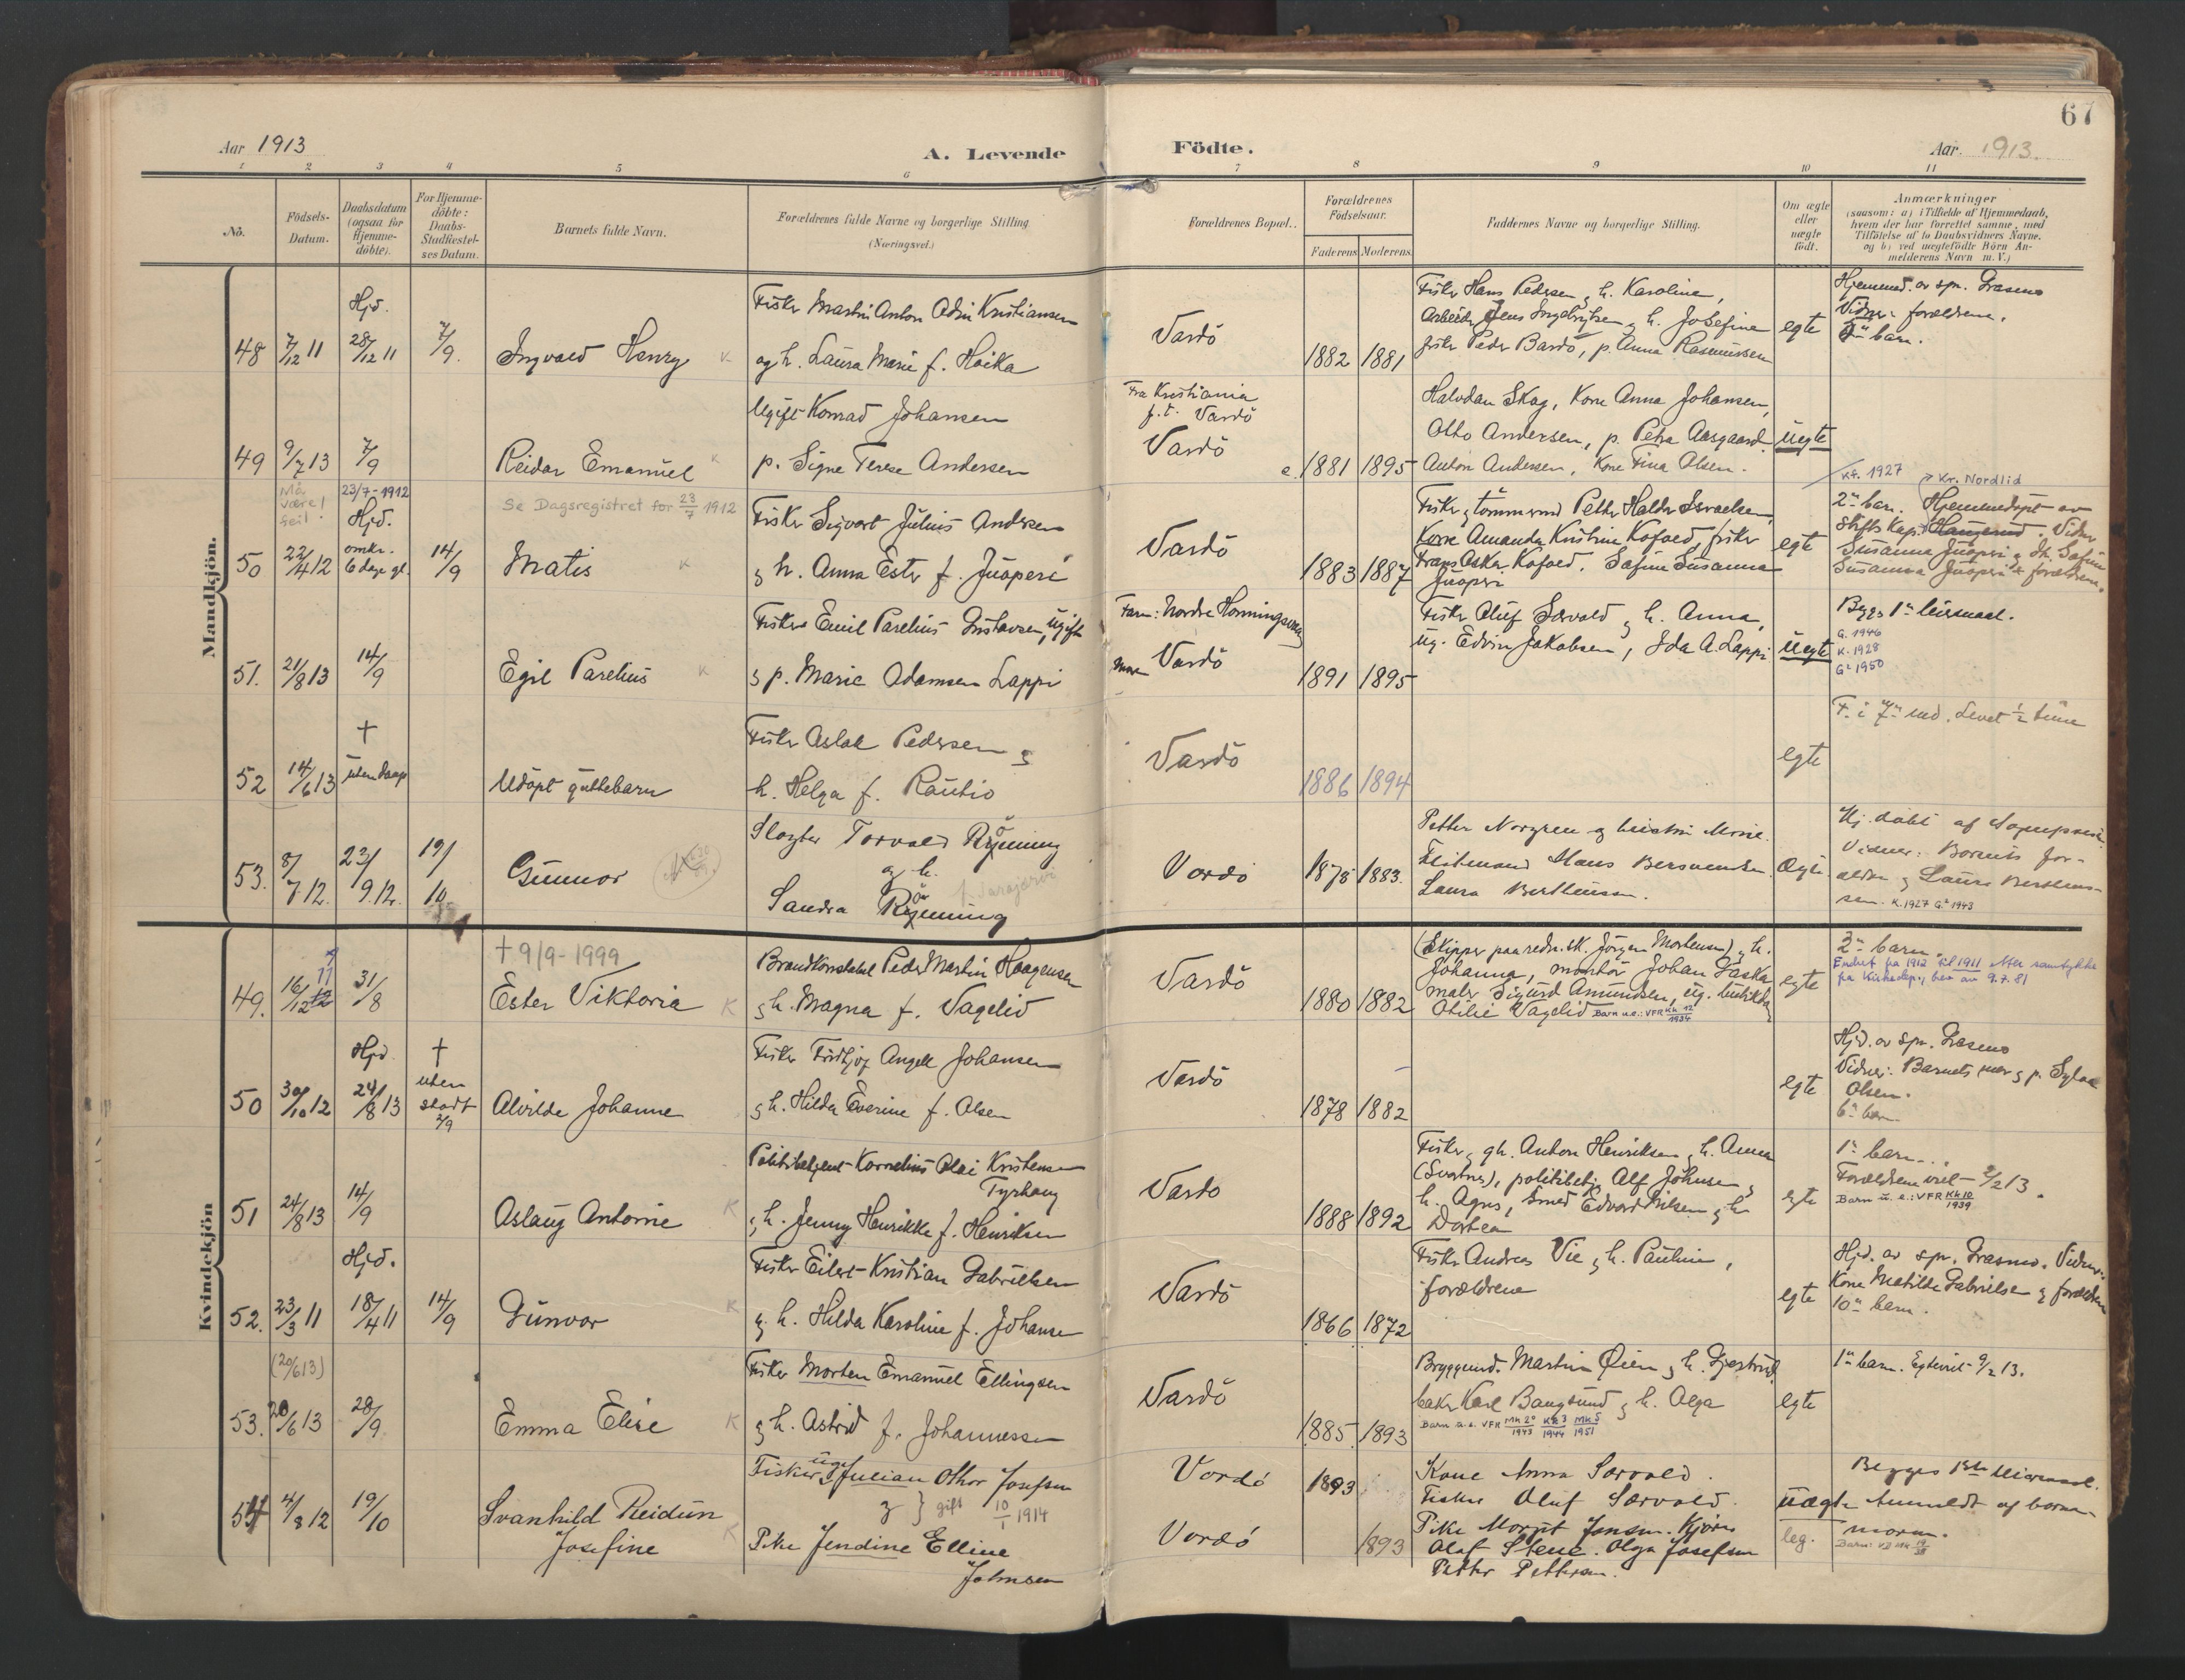 67
Aar 1913
A. Levende
Födte.
Aar 1913.
1 2 3 4 5 6 7 8 9 10 11
No.
Födsels-
Datum.
Daabsdatum
(ogsaa for
Hjemme-
döbte).
For Hjemme-
döbte:
Daabs-
Stadfæstel-
ses Datum.
Barnets fulde Navn.
Forældrenes fulde Navne og borgerlige Stilling
(Næringsvei.)
Forældrenes Bopæl.
Forældrenes
Födselsaar.
Faderens Moderens
Faddernes Navne og borgerlige Stilling.
Om ægte
eller
uægte
födt.
Anmærkninger
(saasom: a) i Tilfælde af Hjemmedaab,
hvem der har forrettet samme, med
Tilföielse af to Daabsvidners Navne.
og b) ved uægtefödte Börn An-
melderens Navn m. V.)
Mandkjön.
48
7/12 11
Hjd.
28/12 11
7/9.
Ingvald Henry
Fisker Martin Anton Odin Kristiansen
og h. Laura Marie f. Haika
Vardö
1882 1881
Fisker Hans Pedersen og h. Karoline,
Arbeider Jens Ingebrigtsen og h. Josefine
fisker Peder Bardö, p. Anna Rasmussen
egte
Hjemmed. av spr. Grasmo
Vidner: forældrene.
barn.
49
9/7 13
7/9
Reidar Emanuel
Ugift Konrad Johansen
p. Signe Terese Andersen
Fra Kristiania
p.t. Vardö
Vardö
1881 1895
Halvdan Skag, Kone Anna Johansen,
Otto Andersen, p. Petra Aasgaard
Anton Andersen, Kone Fina Olsen.
uegte
Må
være!
feil!
23/7-1912
Se Dagsregistret for 23/7 1912
50
22/4 12
Hjd.
omkr.
6 dage gl.
14/9
Matis
Fisker Sigvart Julius Andersen
og h. Anna Ester f. Juoperi
Vardö
1883 1887
Fisker og tömmermd Petter Halder Israelsen,
Kone Amanda Kristine Kofoed, fisker
Frans Oskar Kofoed. Safine Susanna
Juoperi
egte
Kf. 1927
Kr. Nordlid
2" barn. Hjemmedöpt av
stifts kap. Haugerud. Vidner
Susanna Juoperi
Susanna Juoperi forældrene.
51.
21/8 13
14/9
Egil Parelius
Fisker Emil Parelius Gustavsen, ugift
og p. Marie Adamsen Lappi
Far: Nordre Honningsvaag
Mor Vardö
1891 1895
Fisker Oluf Sarvold og h. Anna,
ug. Edvin Jakobsen, Ida A. Lappi
uegte
Begges 1" leiermaal.
G. 1946
K. 1928
G² 1950
52
14/6 13
†
uten daap
Udöpt guttebarn
Fisker Aslak Pedersen og
h. Helga f. Rautio
Vardö
1886 1894
egte
F. i 7" md. Levet ½ time
53.
8/7.12.
23/9.12.
19/10
Gunnor
Slagter Torvald Rönning
og h.
Sandra Rönning
Vardö
1875 1883.
Petter Norgren og hustru Marie.
Flisemand Hans Bersvendsen.
Laura Berthensen.
Ægte
Hj. döbt af Sognepresten
Vidner: Barnets for-
ældre og Laura Berthens-
sen. K. 1927 G² 1943
Kvindekjön
49.
16/12 11
31/8
† 9/9-1999
Ester Viktoria
Brandkonstabel Peder Martin Haagensen
og h. Magna f. Vagelid
Vardö
1880 1882
(Skipper paa redn.sk. Jörgen Mortensen) og h.
Johanna, montör Johan Taska
maler Sigurd Amundsen, ug. butikkd.
Otilie Vagelid Barn u.e.: VFR Kh 12/1934
egte
2" barn.
Endret fra 1912 til 1911 etter samtykke
fra Kirkedep., brev av 9.7.81
50
30/10 12
Hjd.
24/8 13
†
uten
stadf
2/9
Alvilde Johanne
Fisker Fridtjof Angell Johansen
og h. Hilda Everine f. Olsen
Vardö
1878 1882
egte
Hjd. av spr. Grasmo
Vidner: Barnets mor og p. Sylva
Olsen.
6" barn
51
24/8 13
14/9
Aslaug Antonie
Politibetjent Kornelius Olai Kristensen
Tyrhaug
og h. Jenny Henrikke f. Henriksen
Vardö
1888 1892
Fisker og gh. Anton Henriksen og h. Anna
(Svartnes), politibetj. Alf Johnsen og
h. Agnes, Smed Edvard Nilsen og h
Dortea
egte
1" barn.
Forældrene viet 2/2 13.
Barn u.e.: VFR Kh 10/1939
52.
23/3 11
Hjd.
18/4 11
14/9
Gunvor
Fisker Eilert Kristian Gabrielsen
og h. Hilda Karoline f. Johansen
Vardö
1866 1872
Fisker Andreas Vie og h. Pauline,
forældrene
egte
Hjd. av spr. Grasmo. Vidner:
Kone Matilde Gabrielsen og forældrene
10" barn.
53.
(20/6 13)
20/6 13
28/9
Emma Elise
Fisker Morten Emanuel Ellingsen
og h. Astrid f. Johannessen
Vardö
1885 1893
Bryggemd. Martin Öien og h. Gjertrud,
baker Karl Baugsund og h. Olga
Barn u.e. VFR Mk 20/1943 Kh 3/1944 Mk 5/1951
egte
1" barn. Egteviet 9/2 13.
54
4/8 12
19/10
Svanhild Reidun
Josefine
Fisker ugift Julian Othor Josefsen
og } gift 10/1 1914
Pike Jendine Elline
Johnsen
Vardö
Vardö
1893
1893
Kone Anna Sarvold.
Fisker Oluf Sarvold.
Pike Margit Jensen. Kjöres
Olaf Stene. Olga Josefsen
Petter Pettersen.
uægte
leg.
Begges 1ste leiermaal.
Anmeldt af barne-
moren.